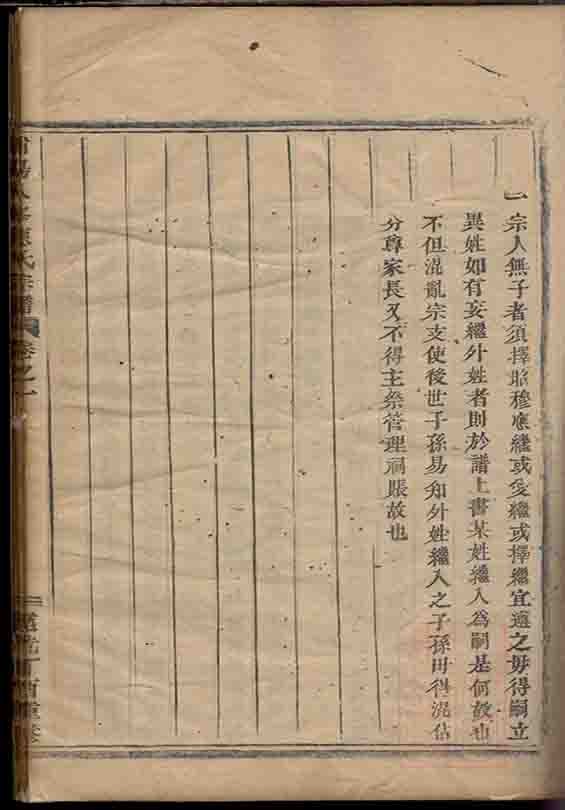 一宗人無子者須擇昭穆應繼或愛繼或擇繼宜遵之毋得嗣立
異姓如有妄繼外姓者則於譜上書某姓繼入為嗣是何故也
不但混亂宗支使後世子孫易知外姓繼入之子孫毋得混佔
分尊家長又不得主祭管理祠賬故也
氏宗譜 卷之一